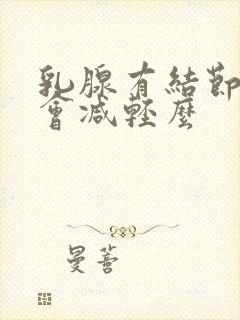 乳腺有結節
會減輕麼
曼薈